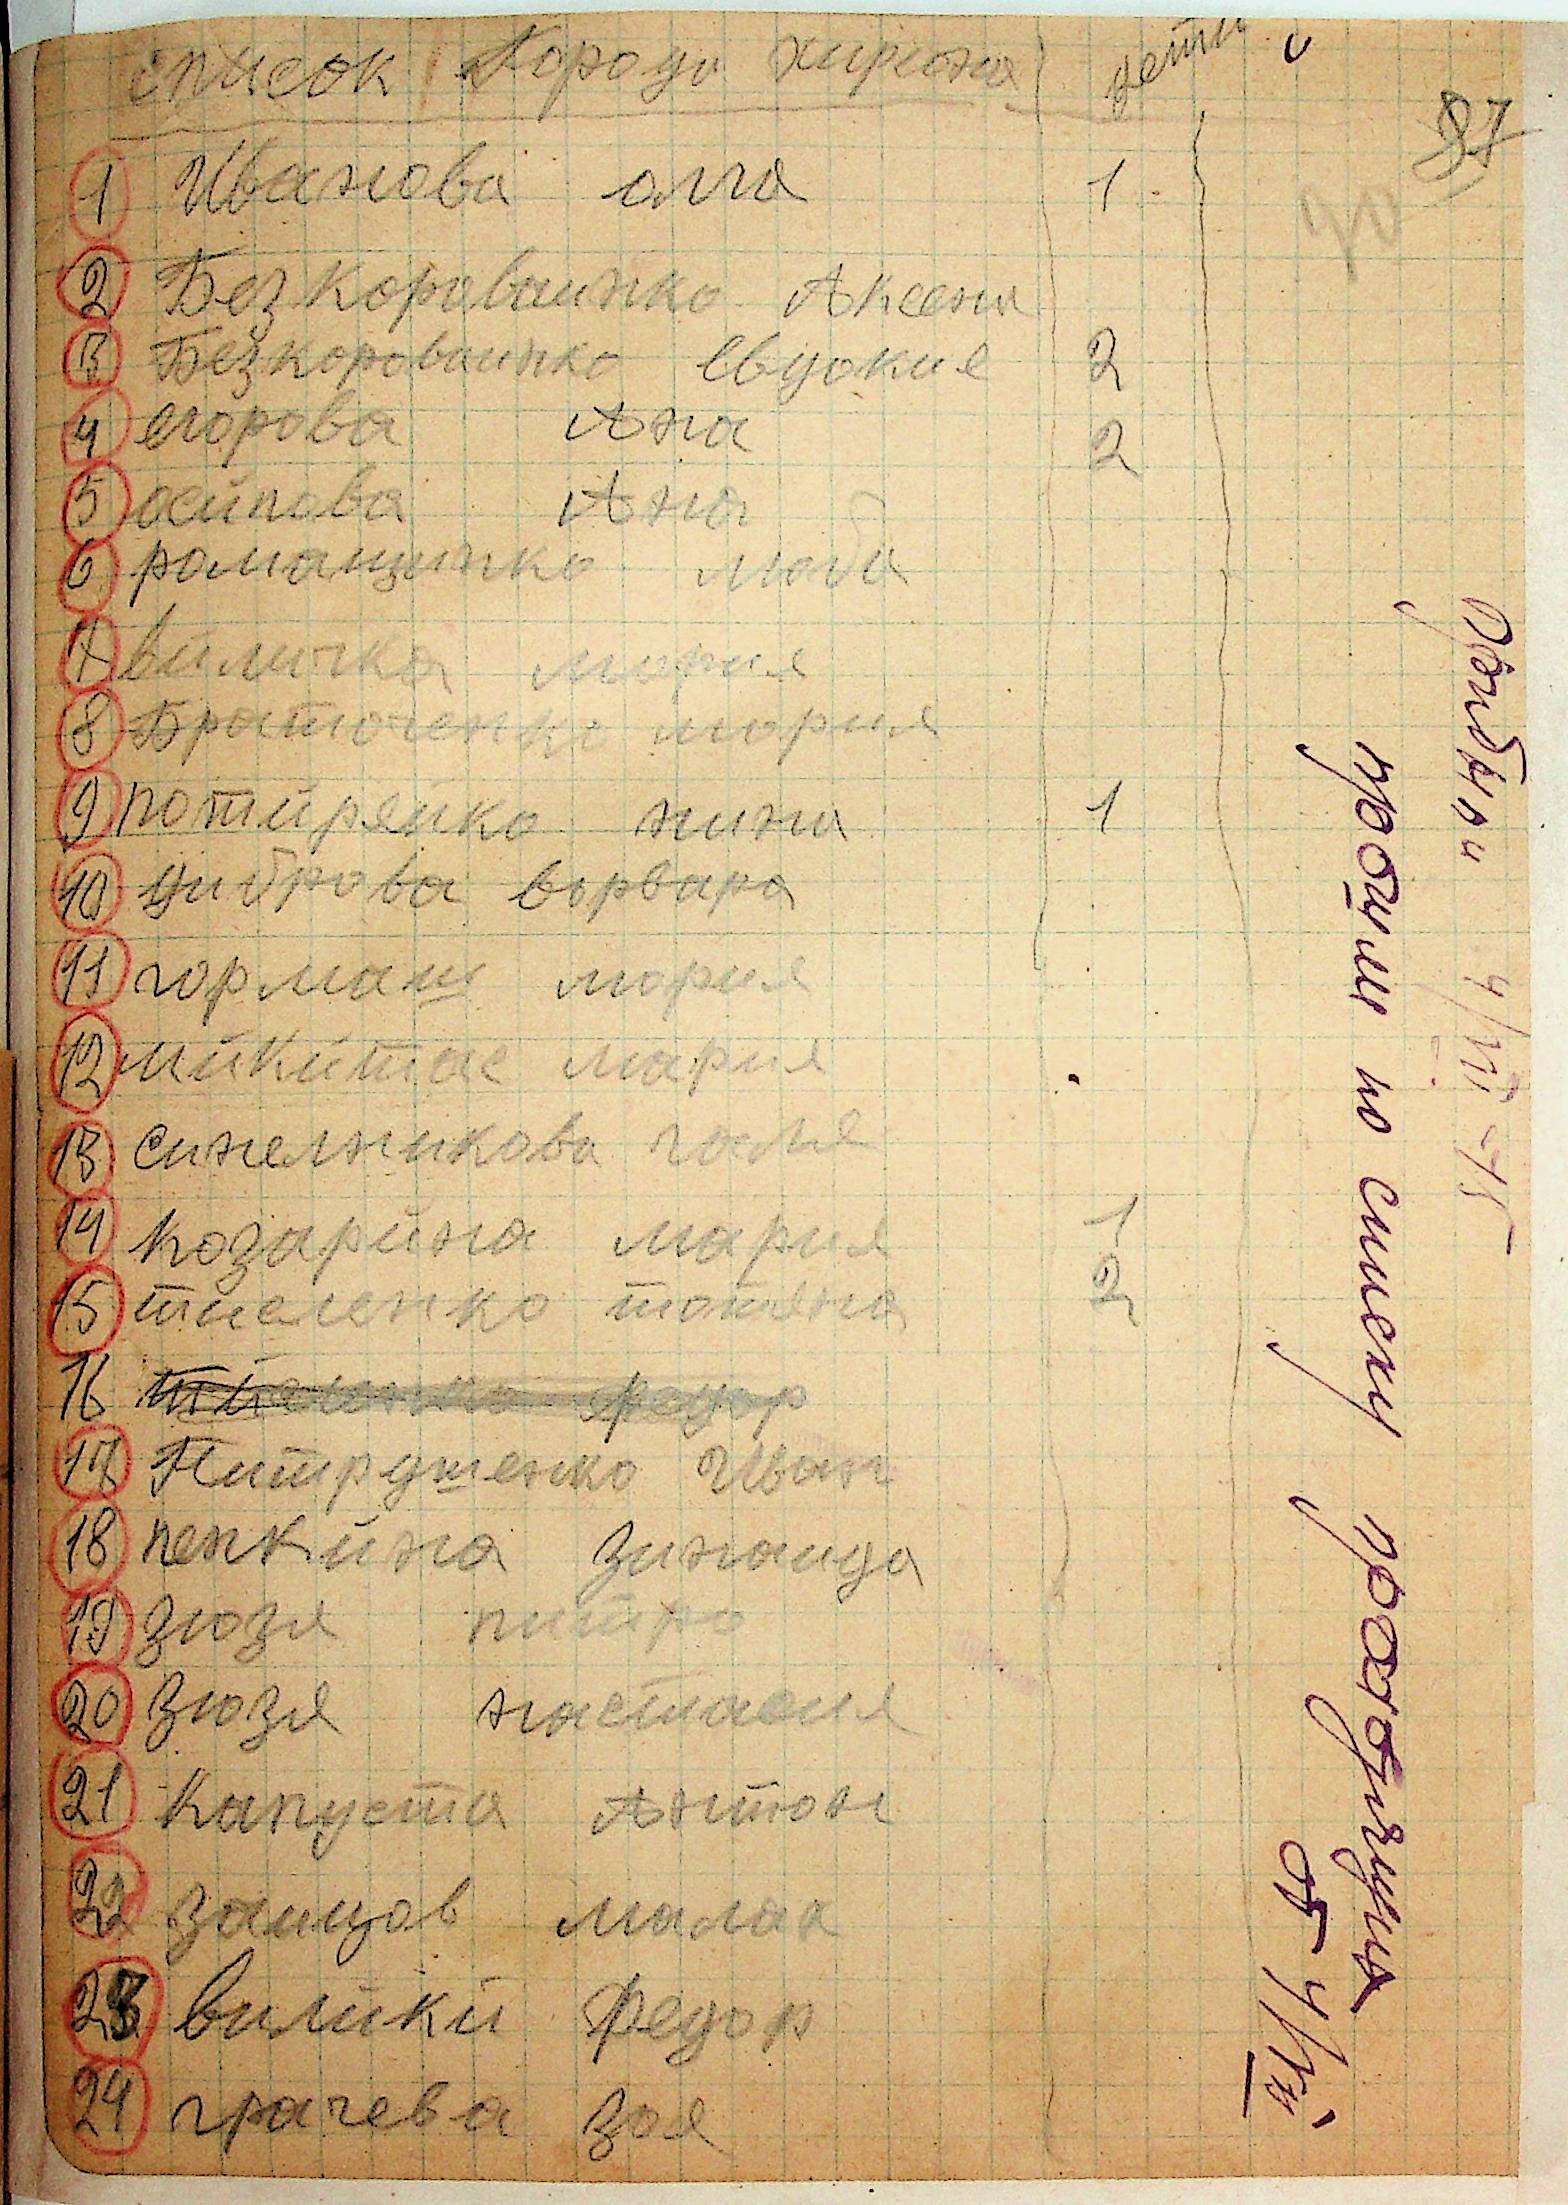 список города хирсона дети
87
1 Иванова олга 1
2 Безкороваинко Аксеня
3 Безкороваинко евдокие 2
4 егорова Ана 2
5 осипова Ана
6 ромащинко люба
7 виличка мария
8 Братюченко мария
9 потирейко нина 1
10 циброва варвара
11 гормаш мария
12 микитас мария
13 синелникова галя
14 козарина мария 1
15 тиеленко татяна 2
16 тиеленко федор
17 Питрушенко Иван
18 пенкина зинаида
19 зюзя питро
20 зюзя настасия
21 Капуста Антон
22 заицов малах
23 вилики Федор
24 грачева зоя
4/VII-45
прошли по списку прохождения
от 4/VII